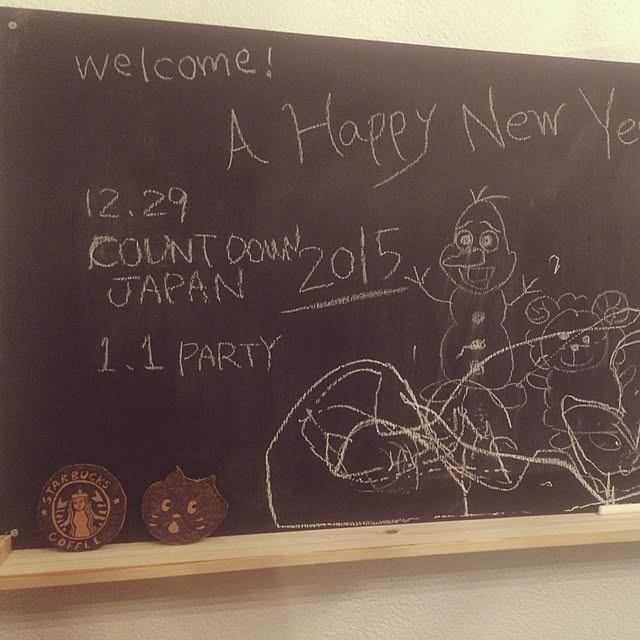 welcome!
A Happy New Ye
12.29
COUNTDOWN
JAPAN
2015
1.1 PARTY
?
STARBUCKS
COFFEE